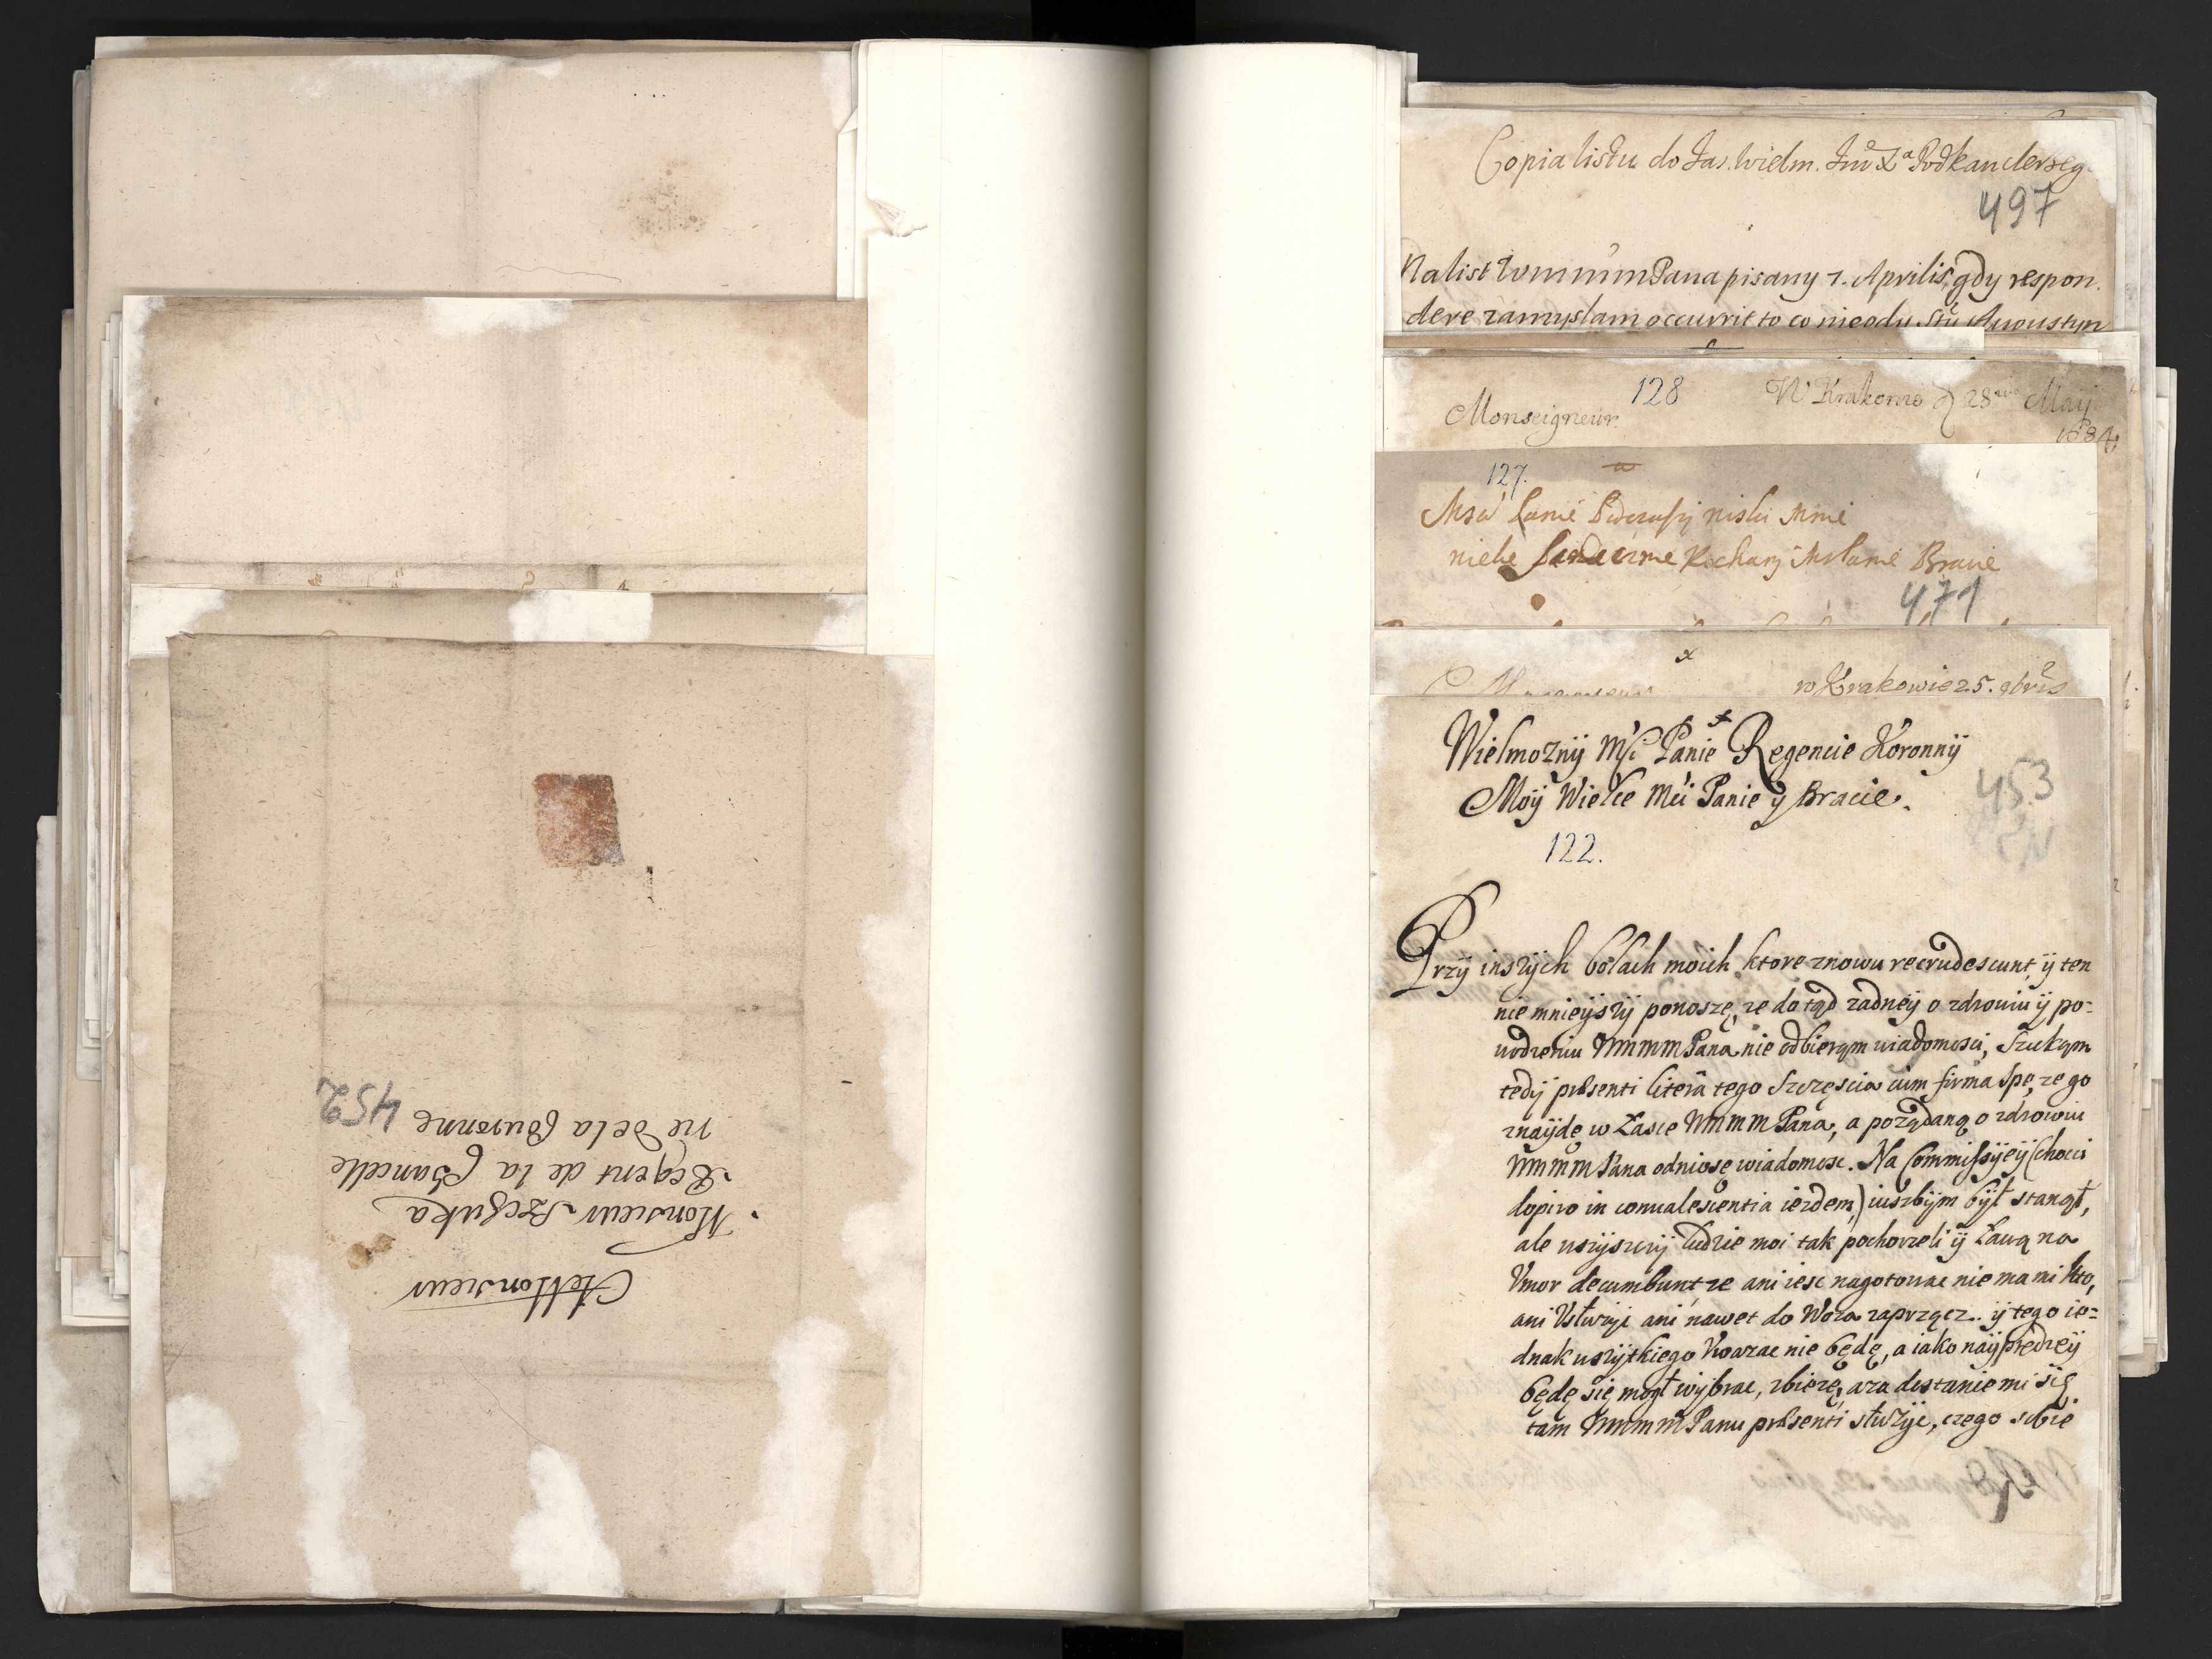 AMonsieur
Monsieur Szczuka
Regent de la Chancelle
rie de la Couronne
452
Copia listu do Jas. Wielm. Podkanclerzeg
497
Na list WMMM Pana pisany 7. Aprilis, gdy respon
dere zamyslam occurrit to co nieodu
128
W Krakowie 28 Maij
Monseigneur
1684.
127.
Kochany Bracie
471
w Krakowie 25. 9bris
Wielmozny Mći Panie Regencie Koronnÿ
Moÿ Wielce Mći Panie ÿ Bracie.
453
122.
Przÿ inszÿch bolach moich ktore znowu recrudescunt, ÿ ten
nie mnieÿszÿ ponoszę, ze dotąd zadneÿ o zdrowiu ÿ po-
wodzeniu WMMM Pana nie odbieram wiadomosci, Szukam
tedÿ præsenti literâ tego Szczęscia cum firma Spe, ze go
znaÿdę w Łasce WMMM Pana, a poządaną o zdrowiu
WMMM Pana odniosę wiadomosc. Na Commissÿeÿ (choci
dopiro in convalescentia iezdem,) iuszbÿm bÿł stanął,
ale wszÿscÿ ludzie moi tak pochorzeli ÿ Ławą na
Vmor decumbunt ze ani iesc nagotowac nie ma mi kto,
ani Vsłuzÿc ani nawet do Woza zaprządz.. ÿ tego ie-
dnak wszÿtkiego Vwazac nie będę, a iako naÿprędzeÿ
będę się mogł wÿbrac, zbiezę, aza dostanie mi się
tam WMMM Panu præsenti słuzÿc, czego sobie